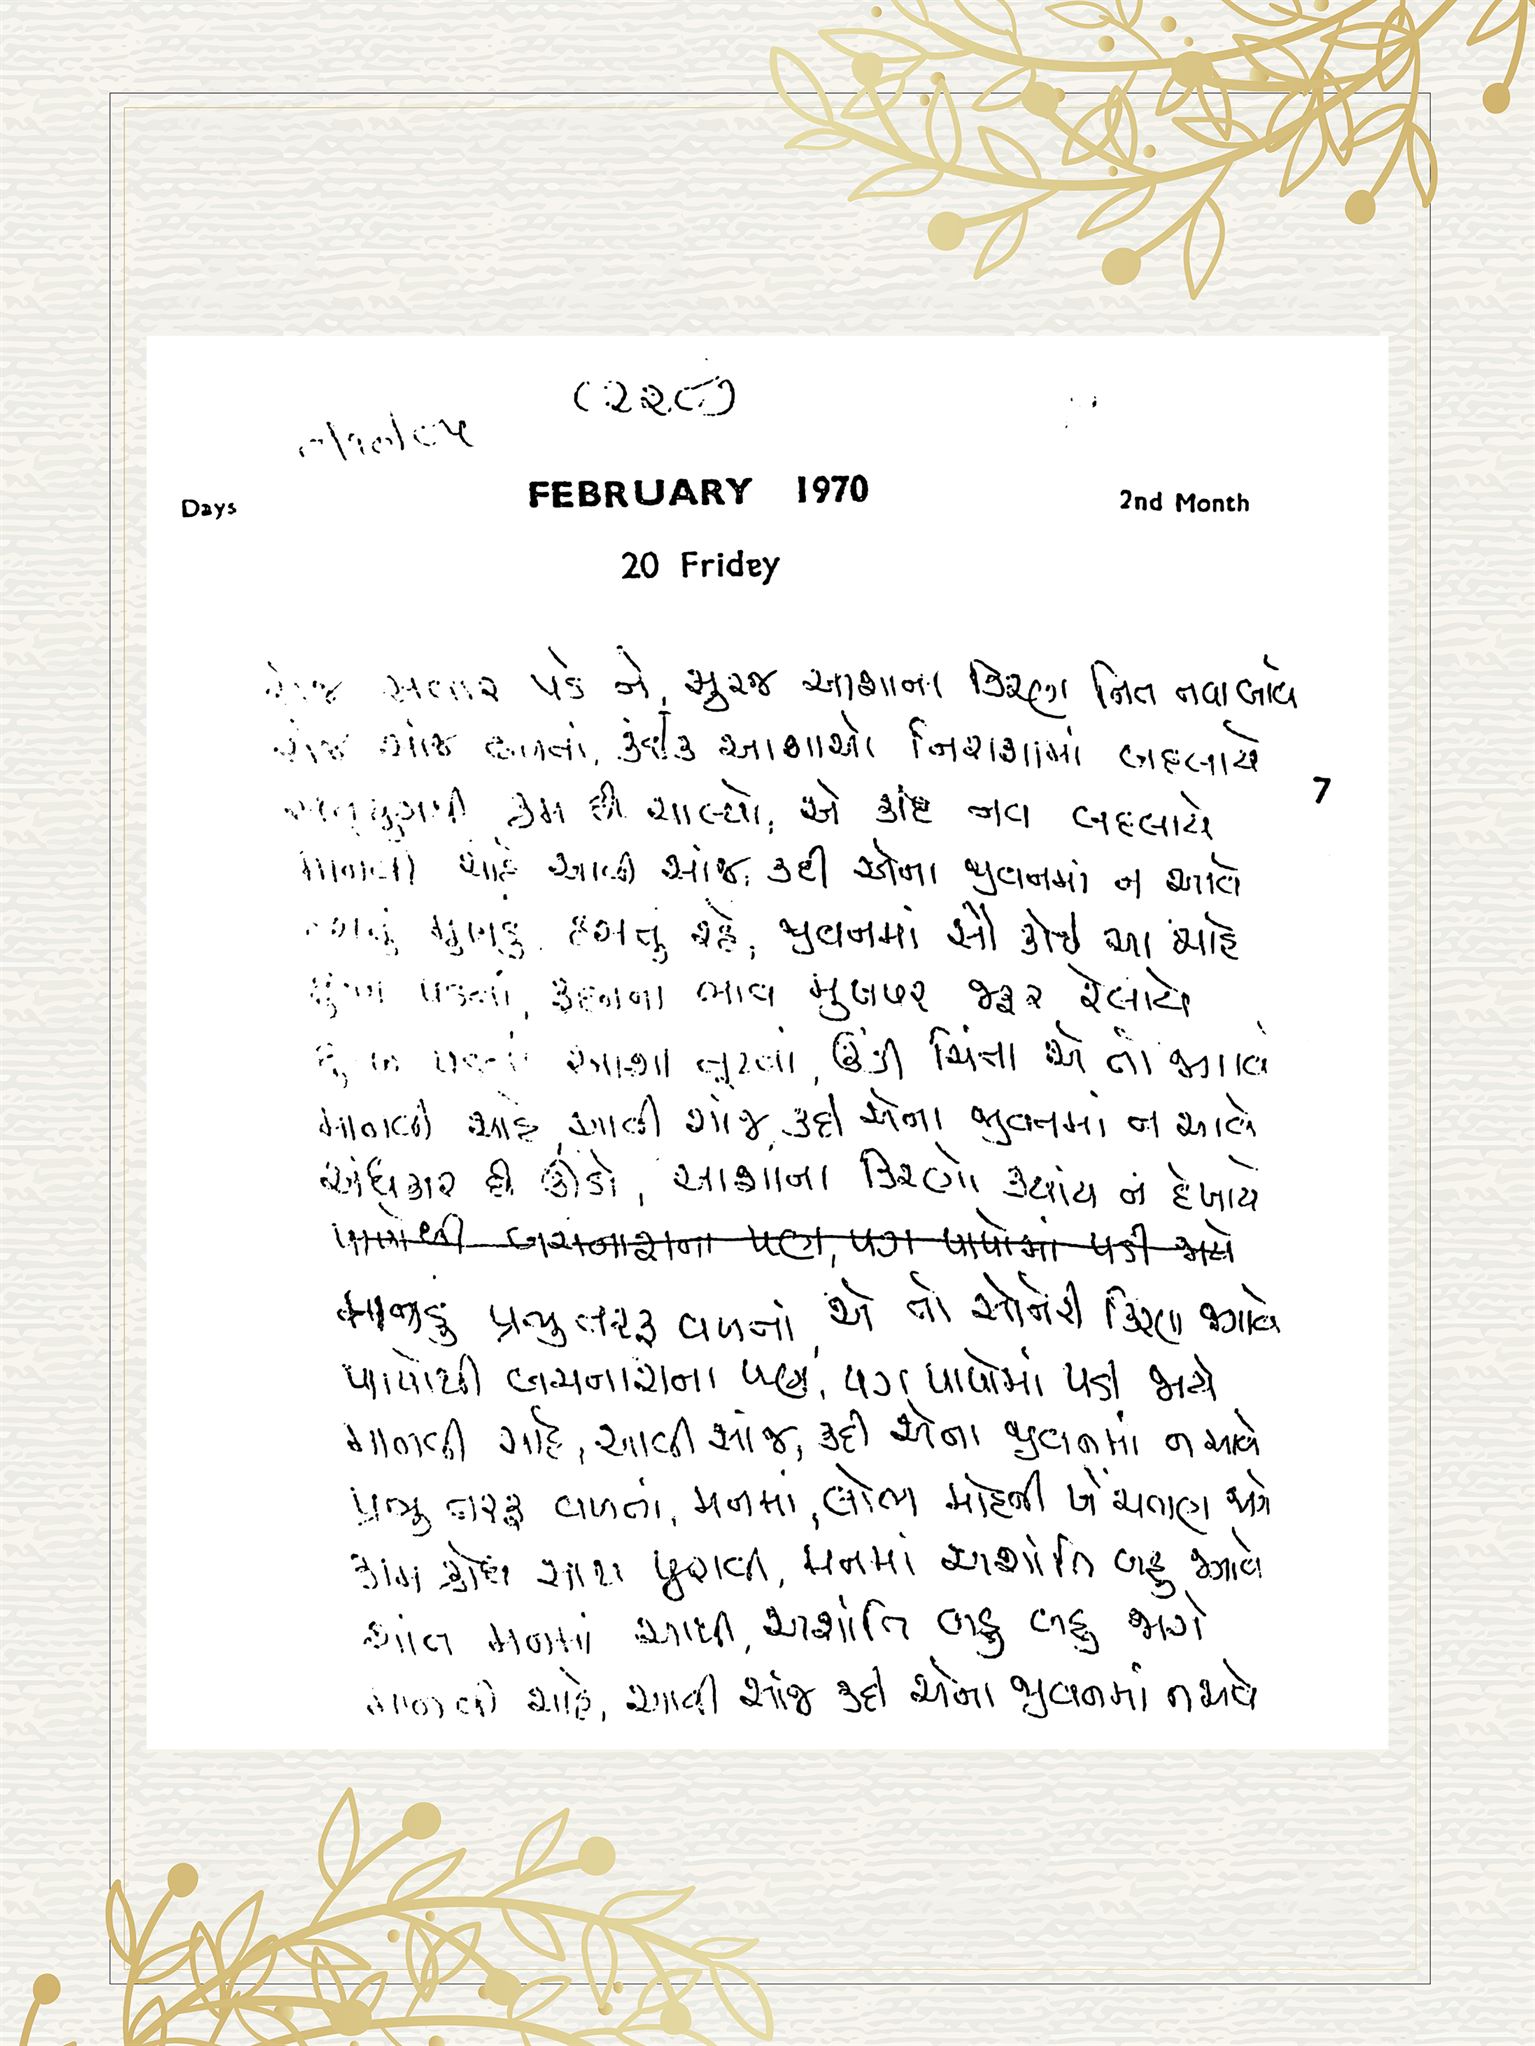 (૨૨૮)
Days FEBRUARY 1970 2nd Month
20 Friday
રોજ સવાર પડે ને, સુરજ આશાના કિરણ નિત નવા લાવે
રોજ સાંજ ઢળતાં, કંઈક આશાઓ નિરાશામાં બદલાયે
7
ક્રમ છે ચાલ્યો, એ કાંઈ નવ બદલાયે
માનવી ચાહે આવી સાંજ, કદી એના જીવનમાં ન આવે
હસતું મુખડું હસતું રહે, જીવનમાં સૌ કોઈ આ ચાહે
દુઃખ પડતાં, રુદનના ભાવ મુખપર જરૂર રેલાયે
દુઃખ પડતાં આશા તૂટતાં, ઊંડી ચિંતા એ તો જગાવે
માનવી ચાહે, આવી સાંજ કદી એના જીવનમાં ન આવે
અંધકાર છે ઊંડો, આશાના કિરણો ક્યાંય ન દેખાયે
પાપોથી બચનારાના પણ, પગ પાપોમાં પડી જાયે
મનડું પ્રભુ તરફ વળતાં, એ તો સોનેરી કિરણ જગાવે
પાપોથી બચનારાના પણ, પગ પાપોમાં પડી જાયે
માનવી ચાહે, આવી સાંજ, કદી એના જીવનમાં ન આવે
પ્રભુ તરફ વળતાં, મનમાં, લોભ મોહની ખેંચતાણ જાગે
કામ ક્રોધ સાથ પુરાવી, મનમાં અશાંતિ બહુ જગાવે
શાંત મનમાં આથી, અશાંતિ બહુ બહુ જાગે
માનવી ચાહે, આવી સાંજ કદી એના જીવનમાં ન આવે